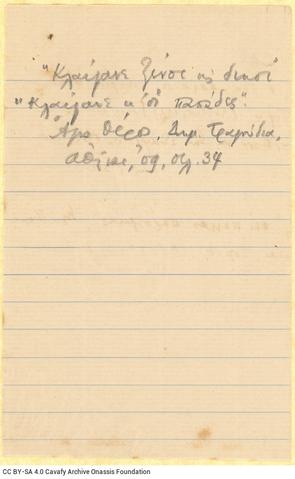 "Κλαίγανε ξένοι κ̀ δικοί
"κλαίγανε κ' οἱ παπάδες".
Ἄγις Θέρο, Δημ. Τραγούδια,
Ἀθῆναι, '09, σελ. 34
CC BY-SA 4.0 Cavafy Archive Onassis Foundation